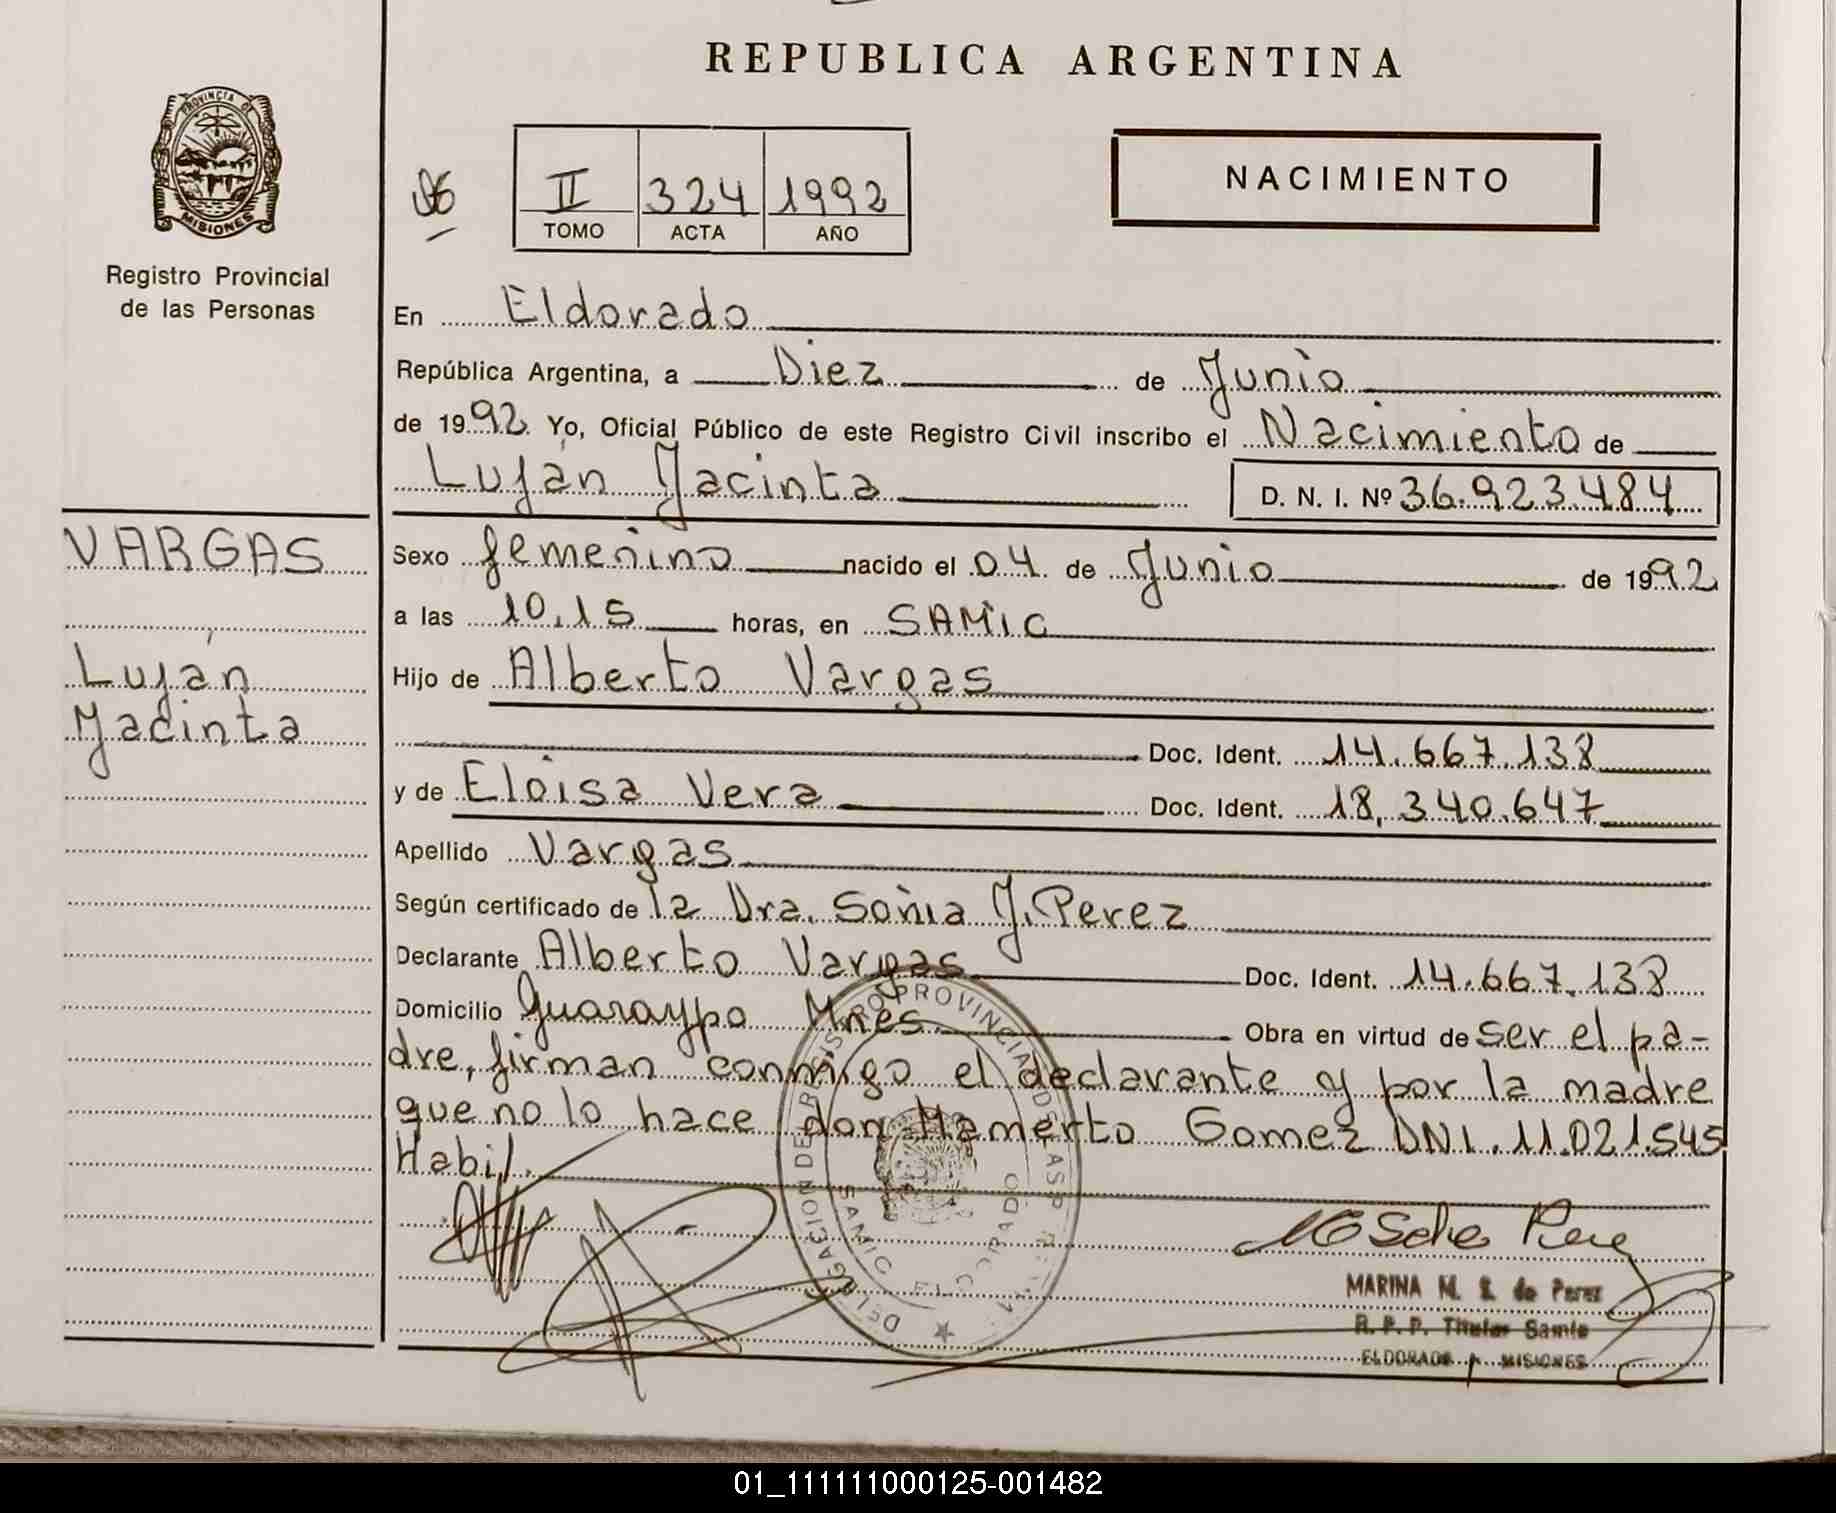 REPUBLICA ARGENTINA
PROVINCIA DE
MISIONES
Registro Provincial
de las Personas
II 324 1992
TOMO ACTA AÑO
NACIMIENTO
En Eldorado
República Argentina, a Diez de Junio
de 1992 Yo, Oficial Público de este Registro Civil inscribo el Nacimiento de
Luján Jacinta D. N. I. Nº 36.923.484
VARGAS
Luján
Jacinta
Sexo femenino nacido el 04 de Junio de 1992
a las 10,15 horas, en SAMIC
Hijo de Alberto Vargas
Doc. Ident. 14.667.138
y de Eloisa Vera Doc. Ident. 18.340.647
Apellido Vargas
Según certificado de la Dra. Sonia J. Perez
Declarante Alberto Vargas Doc. Ident. 14.667.138
Domicilio Guaraypo Mnes. Obra en virtud de ser el pa-
dre, firman conmigo el declarante y por la madre
que no lo hace don Mamerto Gomez DNI. 11.021.545
Habil.
DELEGACION DE REGISTRO PROVINCIAL DE LAS P
SAMIC ELDORADO
MARINA M. S. de Perez
R. P. P. Titular Samic
ELDORADO MISIONES
01_111111000125-001482